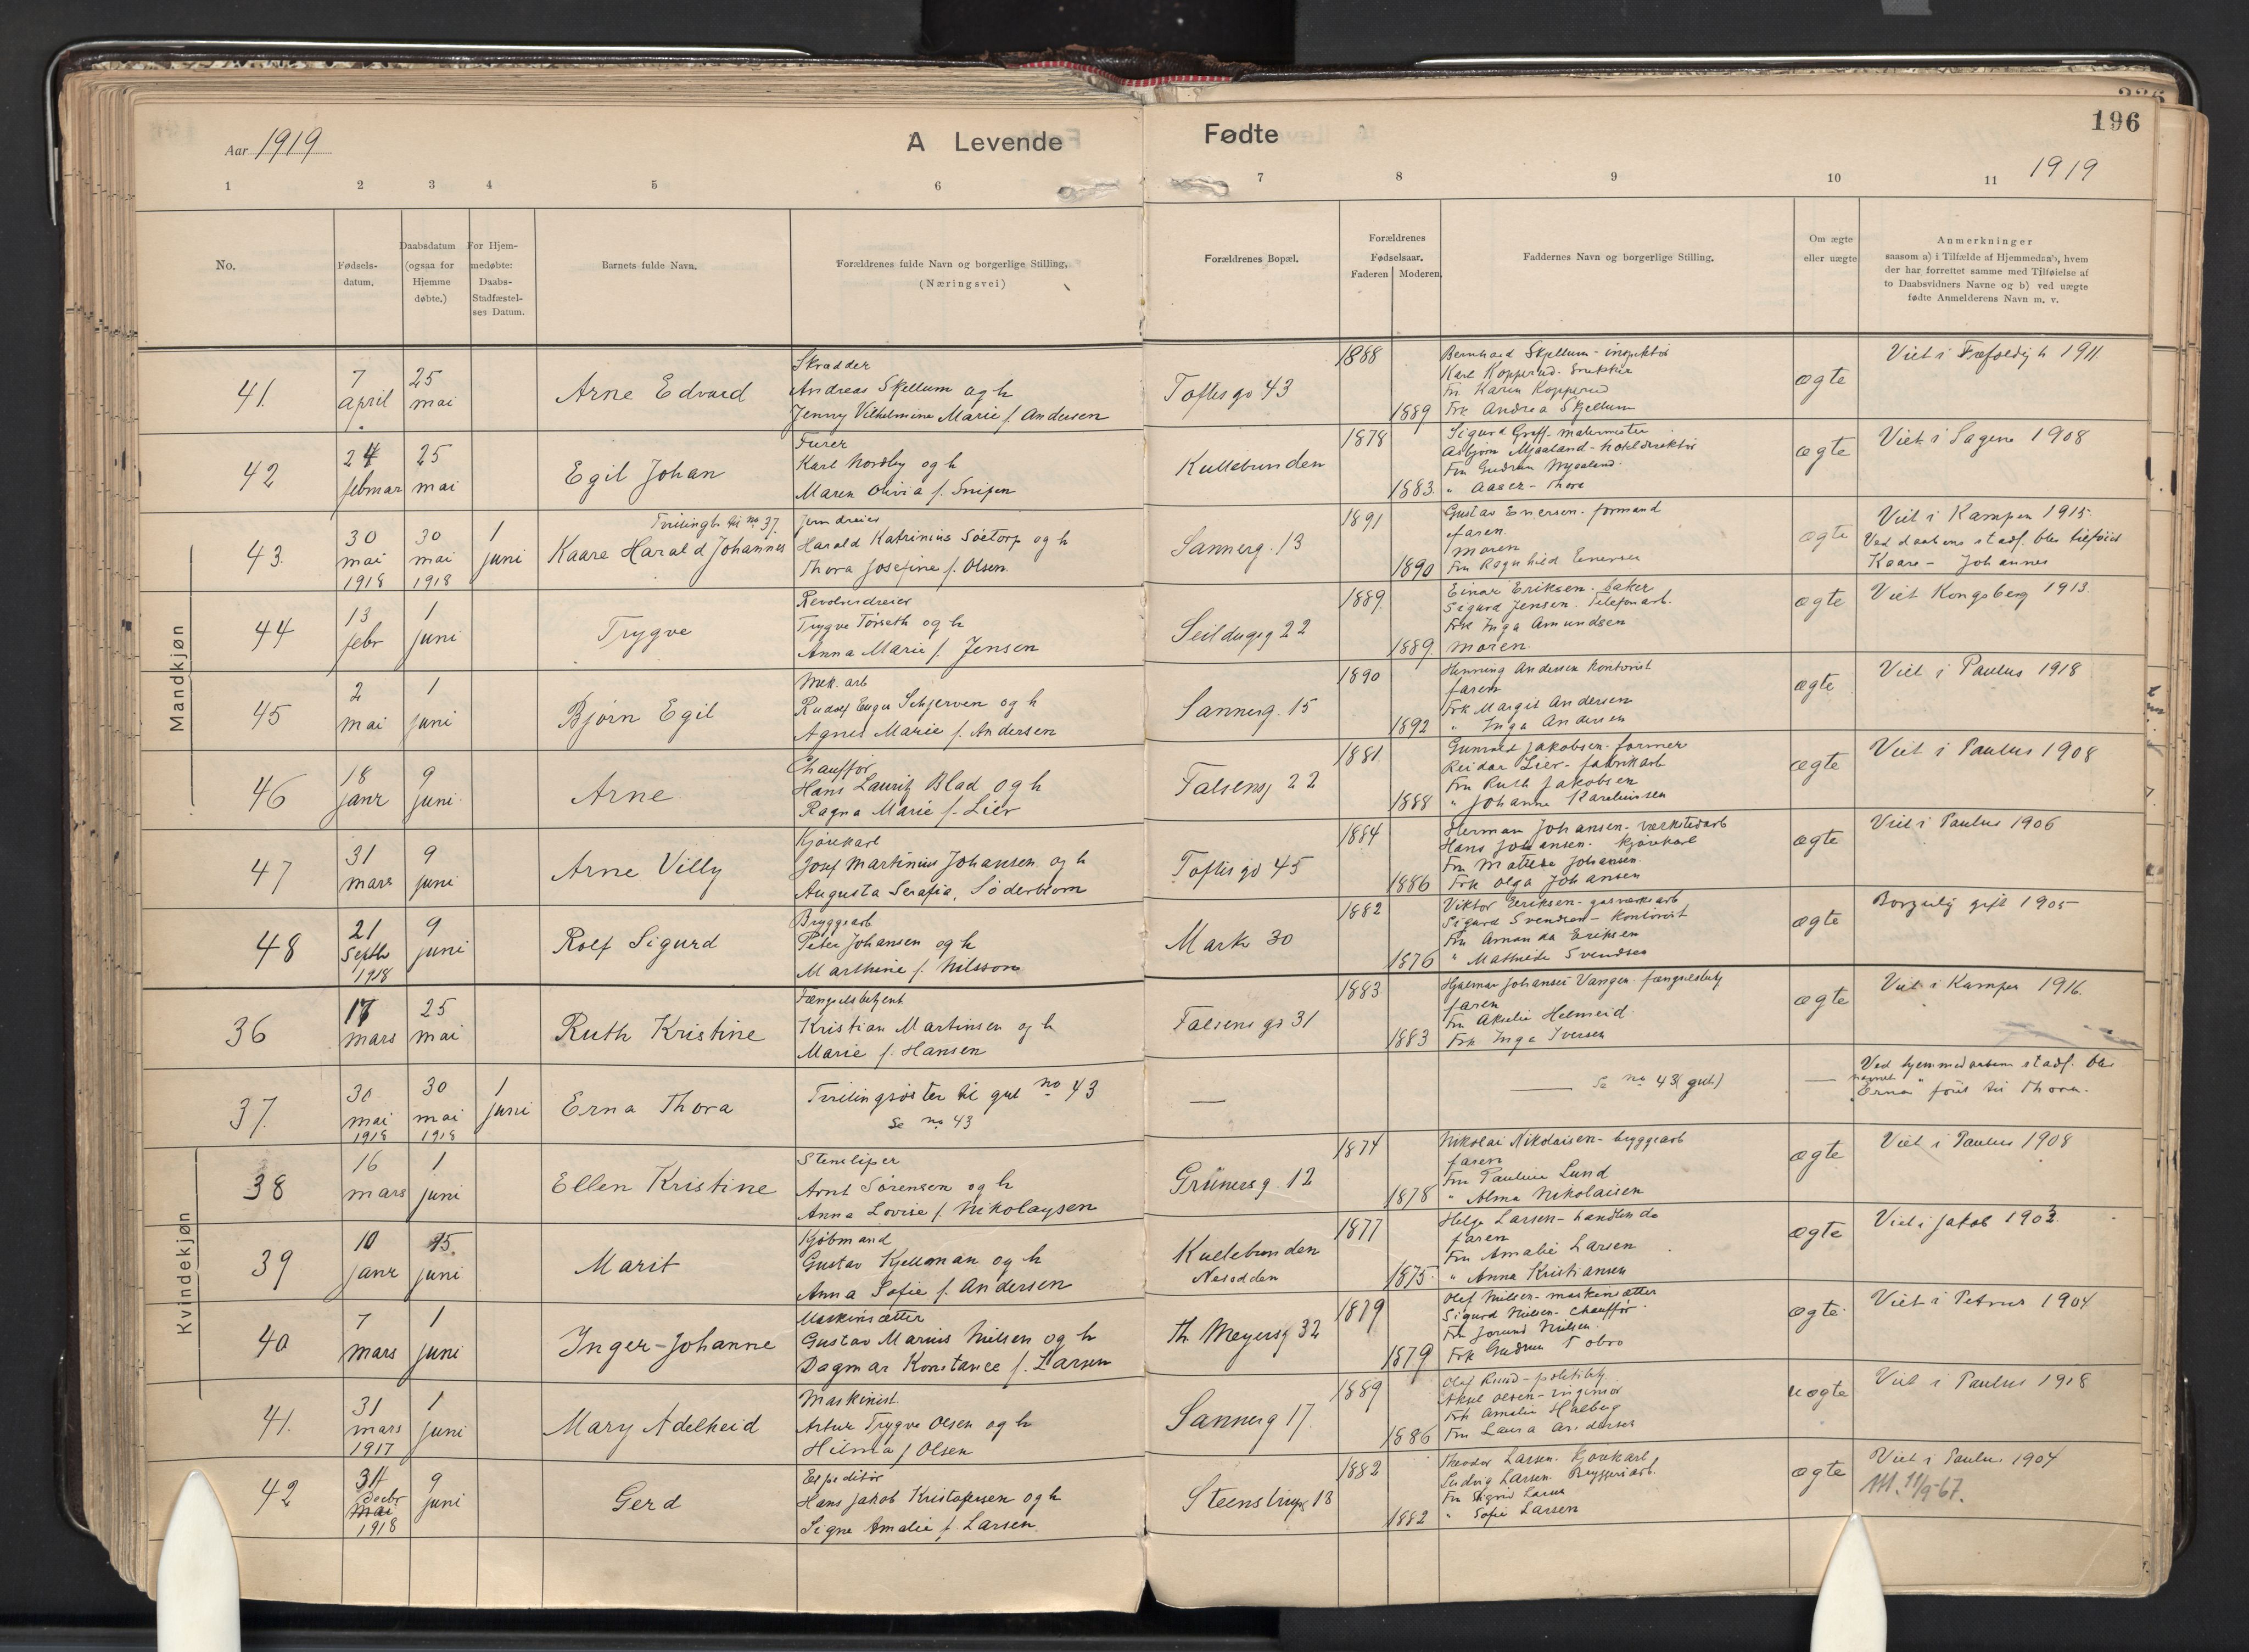 196
Aar 1919
A Levende
Fødte
1919
1 2 3 4 5 6 7 8 9 10 11
No.
Fødsels-
datum.
Daabsdatum
(ogsaa for
Hjemme
døbte.)
For Hjem-
medøbte:
Daabs-
Stadfæstel-
ses Datum.
Barnets fulde Navn.
Forældrenes fulde Navn og borgerlige Stilling.
(Næringsvei)
Forældrenes Bopæl.
Forældrenes
Fødselsaar.
Faderen Moderen.
Faddernes Navn og borgerlige Stilling.
Om ægte
eller uægte
Anmerkninger
saasom a) i Tilfælde af Hjemmedaab, hvem
der har forrettet samme med Tilføielse af
to Daabsvidners Navne og b) ved uægte
fødte Anmelderens Navn m. v.
Mandkjøn
41.
7
april
25
mai
Arne Edvard
Skrædder
Andreas Skjellum og h
Jenny Vilhelmine Marie f. Andersen
Toftesgd 43
1888
1889
Bernhard Skjellum - inspektør
Karl Kopperud
Fru Karen Kopperud
Frk Andrea Skjellum
ægte
Viet i 1911
42
24
februar
25
mai
Egil Johan
Furer
Karl Nordby og h
Maren Olivia f. Snipen
Kullebunden
1878
1883
Sigurd Greff - malermester
Asbjørn Mjaaland - hoteldirektør
Fru Gudrun Mjaaland
ægte
Viet i Sagene 1908
43.
30
mai
1918
30
mai
1918
1
juni
Tvillingb. til no 37.
Kaare Harald Johannes
Jerndreier
Harald Katrinius Søetorp og h
Thora Josefine f. Olsen
Sannerg. 13
1891
1890
Gustav Enersen - formand
faren
moren
Fru Ragnhild Enersen
ægte
Viet i Kampen 1915.
Ved daabens stadf. blev tilføiet
Kaare - Johannes
44
13
febr
1
juni
Trygve
Revolverdreier
Trygve Torseth og h
Anna Marie f. Jensen
Seildugsg 22
1889
1889.
Einar Eriksen - baker
Sigurd Jensen - Telefonarb.
Frk Inga Amundsen
moren
ægte
Viet Kongsberg 1913.
45
2
mai
1
juni
Bjørn Egil
Mek. arb
Rudolf Schjerven og h
Agnes Marie f. Andersen
Sannerg. 15
1890
1892
Henning Andersen kontorist
faren
Frk Margit Andersen
" Inga Andersen
ægte
Viet i Paulus 1918
46
18
janr
9
juni
Arne
Chauffør
Hans Lauritz Blad og h
Ragna Marie f. Lier
Falsensg 22
1881
1888
Gunvald Jakobsen - former
Reidar Lier - fabrikarb
Fru Ruth Jakobsen
" Johanne Karelinssen
ægte
Viet i Paulus 1908
47
31
mars
9
juni
Arne Villy
Kjørekarl
Josef Martinius Johansen og h
Augusta Serafia, Söderblom
Toftesgd 45
1884
1886
Herman Johansen - værkstedarb
Hans Johansen - kjørekarl
Fru Johansen
Frk Olga Johansen
ægte
Viet i Paulus 1906
48
21
Septbr
1918
9
juni
Rolf Sigurd
Bryggearb
Peter Johansen og h
Marthine f. Nilsson
Markv 30
1882
1876
Viktor Eriksen - gasværkarb
Sigurd Svendsen - Kontorist
Fru Amanda Eriksen
" Mathilde Svendsen
ægte
Borgerlig gift 1905
36
17
mars
25
mai
Ruth Kristine
Fængselsbetjent
Kristian Martinsen og h
Marie f. Hansen
Falsensgd 31
1883
1883
Hjalmar Johansen Vangen fængselsbetj
faren
Fru Akselie Helmeid
Frk Inga Iversen
ægte
Viet i Kampen 1916.
37.
30
mai
1918
30
mai
1918
1
juni
Erna Thora
Tvillingsøster til gut no 43
Se no 43
—
— Se no 43 (gut)
—
Ved hjemmedaabens stadf. blev
navnet
"Erna" føiet til Thora.
Kvindekjøn
38
16
mars
1
juni
Ellen Kristine
Stensliper
Arnt Sørensen og h
Anna Lovise f. Nikolaysen
Grünersg. 12
1874
1878
Nikolai Nikolaisen - bryggearb
faren
Fru Pauline Lund
" Alma Nikolaisen
ægte
Viet i Paulus 1908
39
10
janr
15
juni
Marit
Kjøbmand
Gustav Kjellman og h
Anna Sofie f. Andersen
Kullebunden
Nesodden
1877
1875.
Helge Larsen - handlende
faren
Fru Amalie Larsen
" Anna Kristiansen
ægte
Viet i Jakob 1902.
40
7
mars
1
juni
Inger-Johanne
Maskinsætter
Gustav Marius Nielsen og h
Dagmar Konstance f. Larsen
Th. Meyersg 32
1879
1879
Olaf Nielsen - maskinsætter
Sigurd Nielsen - Chauffør
Fru Jorund Nielsen
Frk Gudrun Tobro
ægte
Viet i Petrus 1904
41.
31
mars
1917
1
juni
Mary Adelheid
Maskinist.
Artur Trygve Olsen og h
Hilma f Olsen
Sannerg 17.
1889
1886
Olaf Rund - politibetj
Aksel Olsen - ingeniør
Frk Amalie Halberg
Fru Laura Andersen
uægte
Viet i Paulus 1918
42
31
Decbr
Mai
1918
9
juni
Gerd
Expeditør
Hans Jakob Kristofersen og h
Signe Amalie f. Larsen
Steenstrupg 13
1882
1882
Theodor Larsen. Kjørekarl
Ludvig Larsen. Bryggeriarb.
Fru Sigrid Larsen
" Sofie Larsen
ægte
Viet i Paulus 1904
M. 11/9-67.